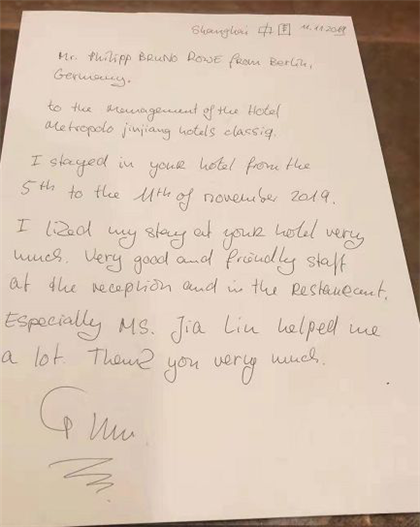 Shanghai 中国 11.11.2019
Mr. Philipp BRUNO ROWE from Berlin,
Germany.
to the management of the Hotel
Metropolo jinjiang hotels classiq.
I stayed in your hotel from the
5th to the 11th of november 2019.
I liked my stay at your hotel very
much. Very good and friendly staff
at the reception and in the Restaurant.
Especially MS. Jia Lin helped me
a lot. Thank you very much.